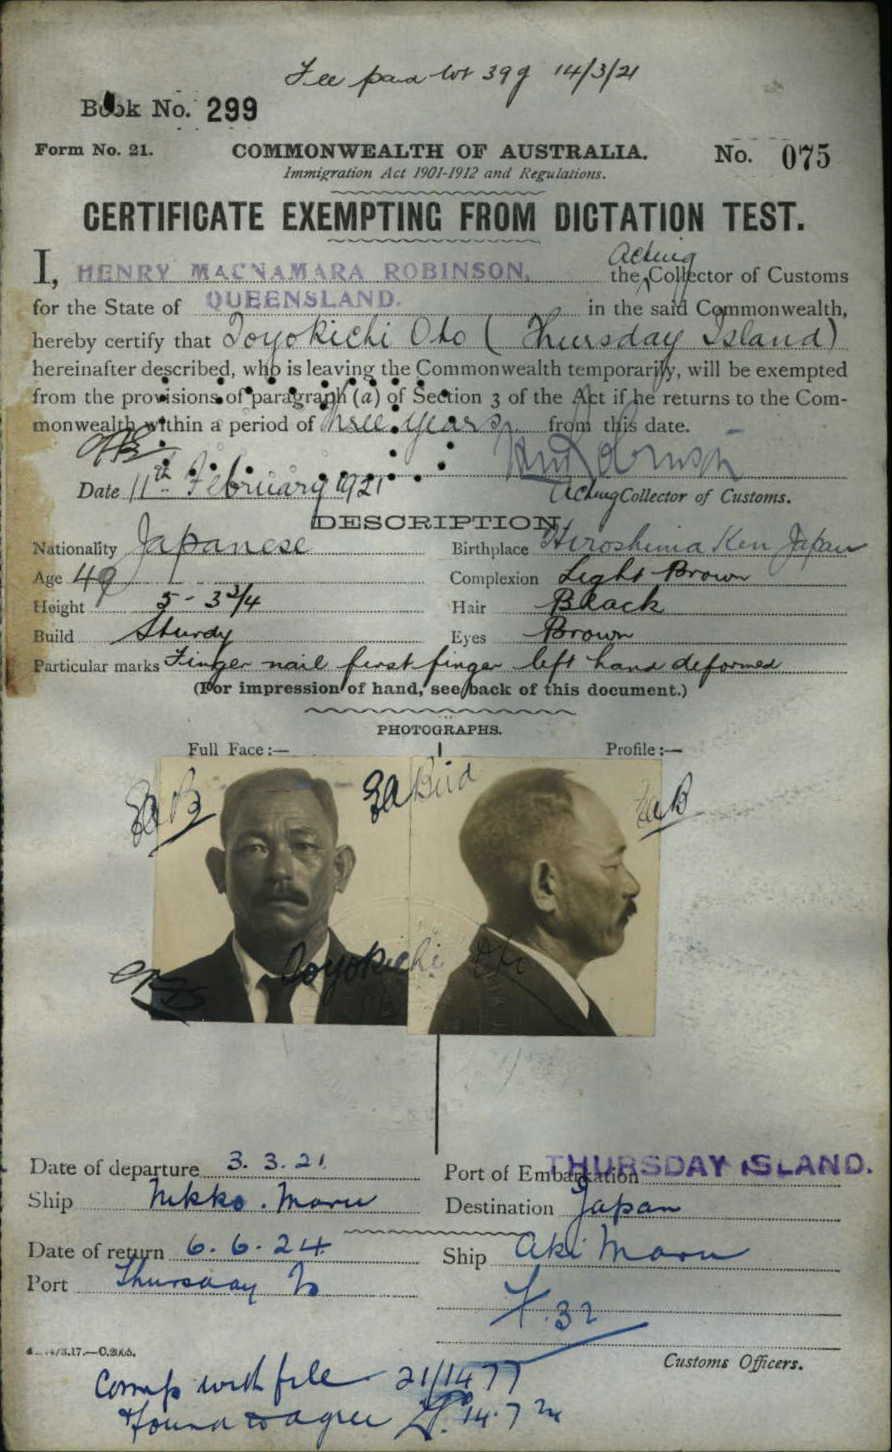 Fee paid 14/3/21
Book No. 299
Form No. 21. COMMONWEALTH OF AUSTRALIA. No. 075
Immigration Act 1901-1912 and Regulations.
CERTIFICATE EXEMPTING FROM DICTATION TEST.
I, HENRY MACNAMARA ROBINSON, the Acting Collector of Customs
for the State of QUEENSLAND. in the said Commonwealth,
hereby certify that Toyokichi Oto (Thursday Island)
hereinafter described, who is leaving the Commonwealth temporarily, will be exempted
from the provisions of paragraph (a) of Section 3 of the Act if he returns to the Com-
monwealth within a period of three years from this date.
Date 11th February 1921 Acting Collector of Customs.
DESCRIPTION
Nationality Japanese Birthplace Hiroshima Ken Japan
Age 49 Complexion Light Brown
Height 5-3 3/4 Hair Black
Build Sturdy Eyes Brown
Particular marks Finger nail first finger left hand deformed
(For impression of hand, see back of this document.)
PHOTOGRAPHS.
Full Face:— Profile:—
Toyokichi Oto
Date of departure 3.3.21 Port of Embarkation THURSDAY ISLAND.
Ship Nikko Maru Destination Japan
Date of return 6.6.24 Ship Aki Maru
Port Thursday Is
F.32
Customs Officers.
Comp with file 21/1477
Found to agree 14.7